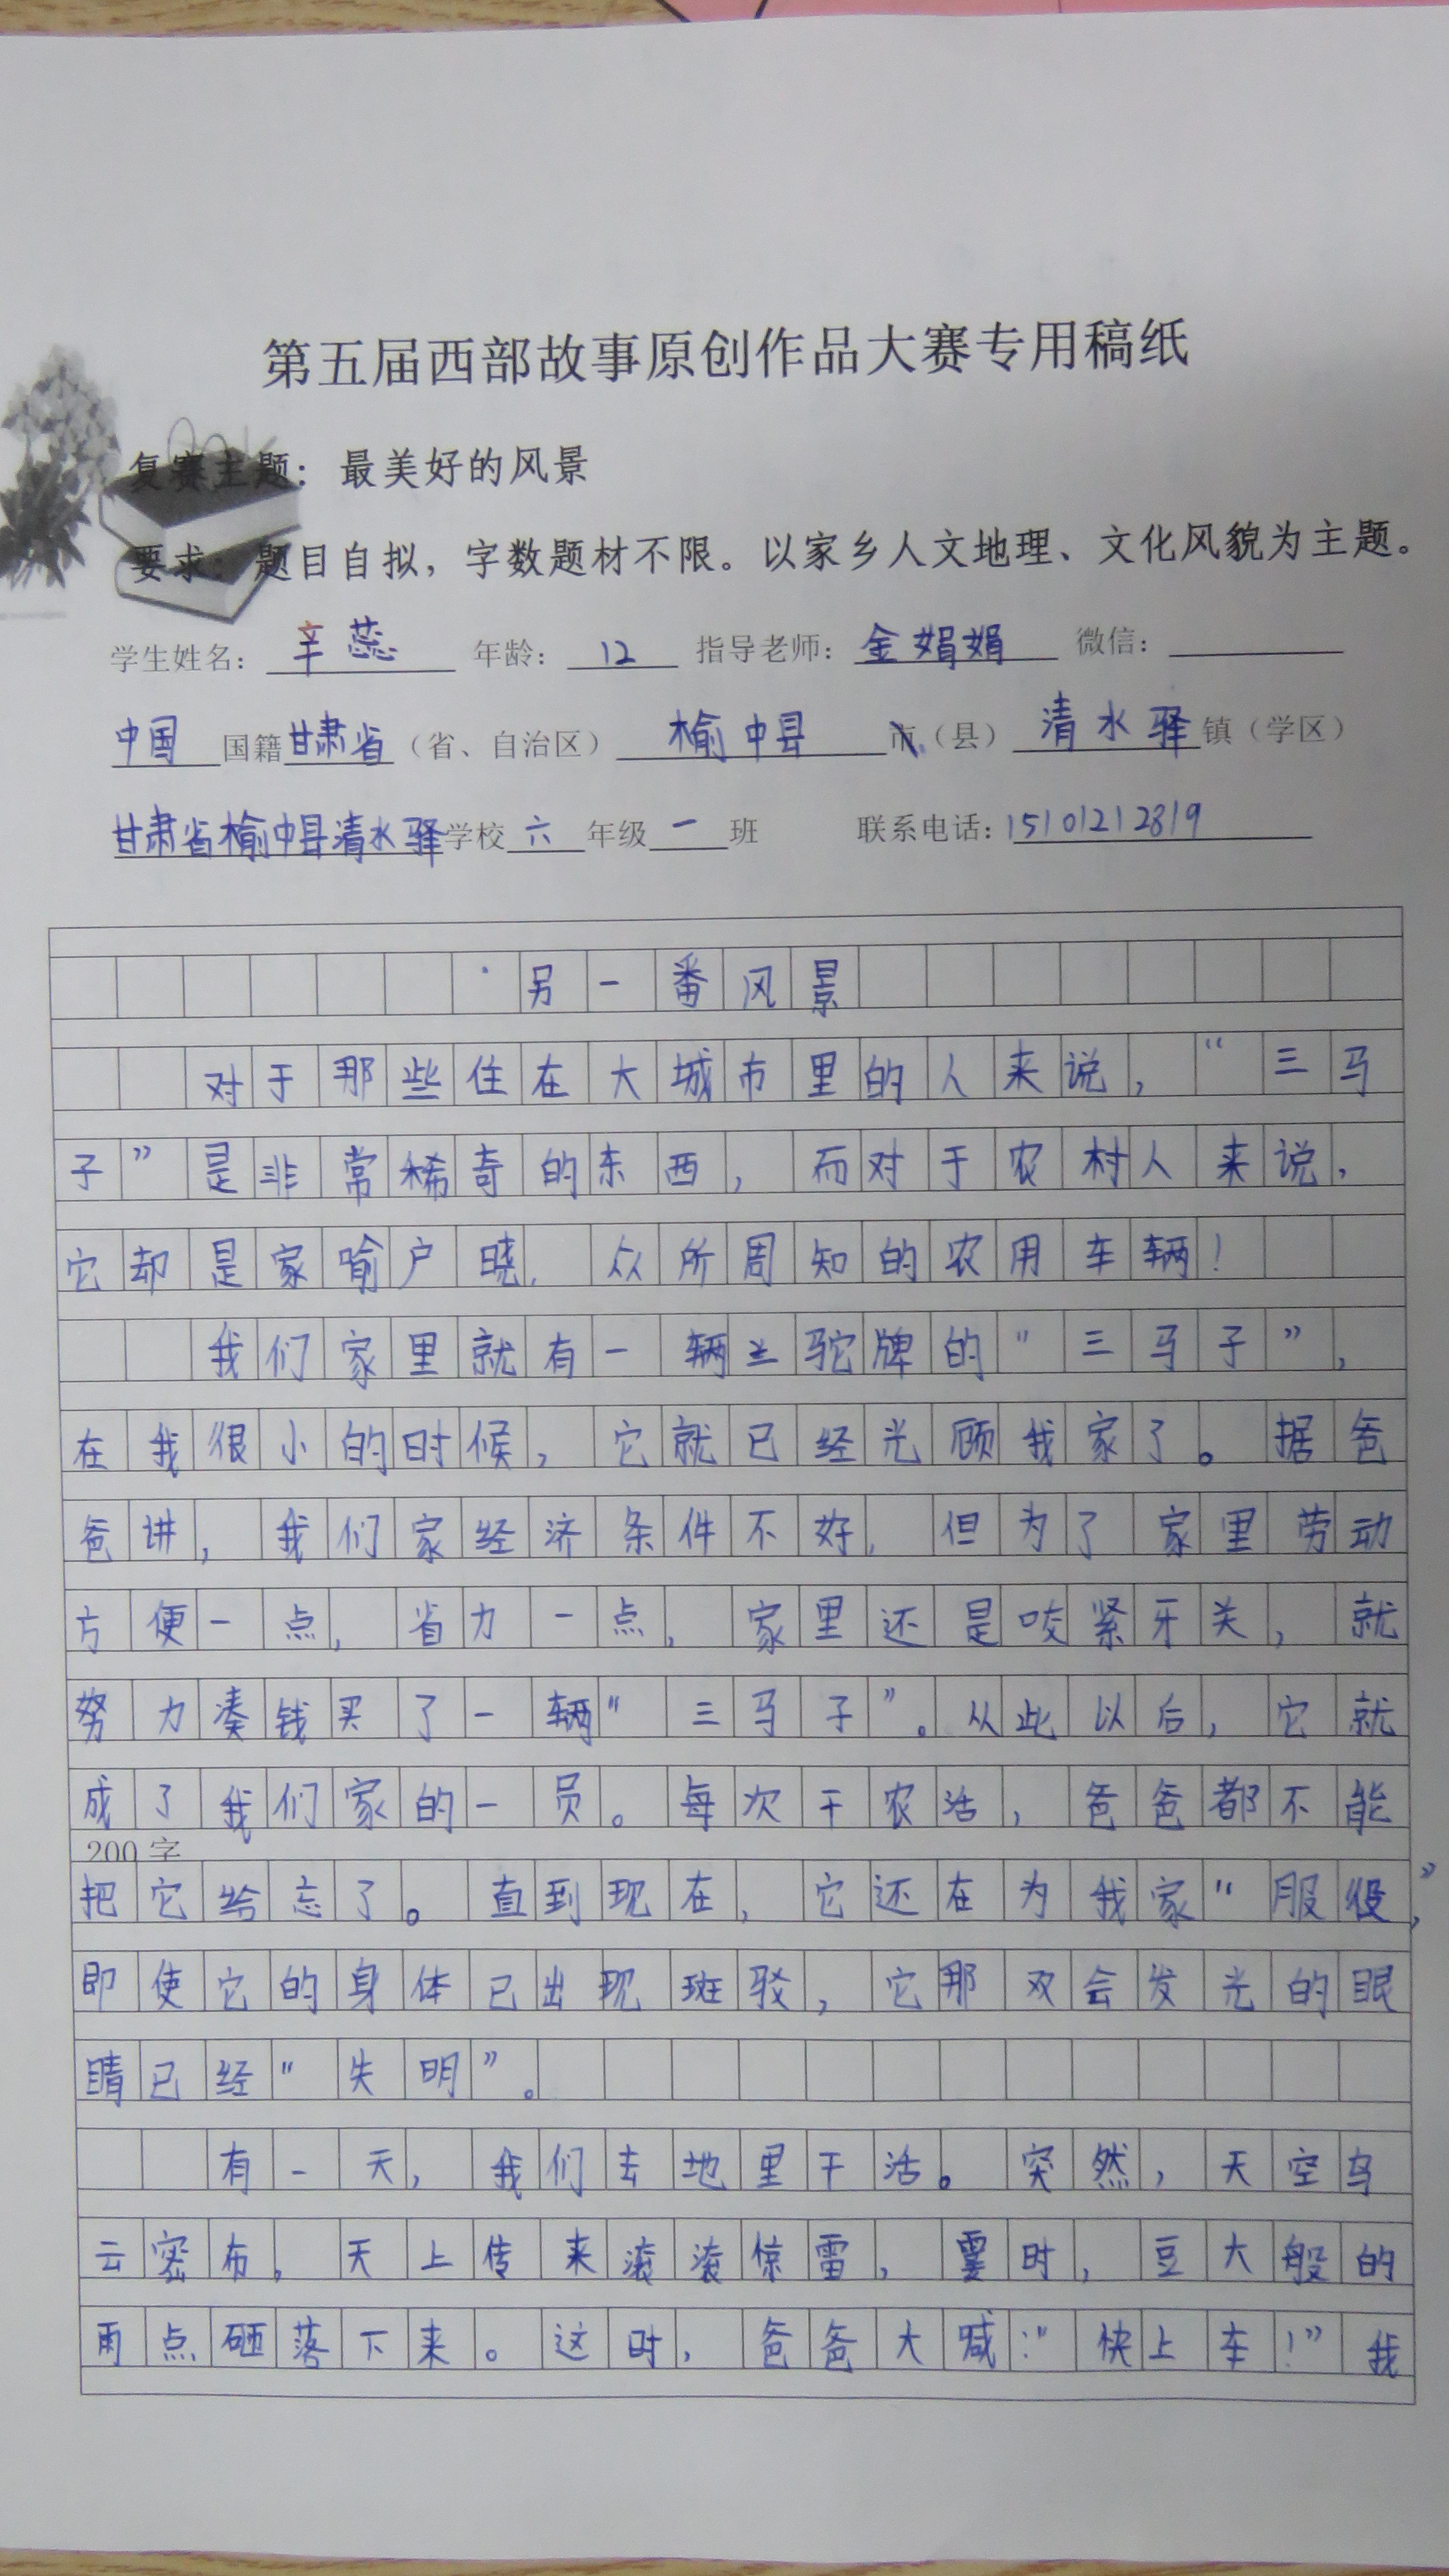 第五届西部故事原创作品大赛专用稿纸
复赛主题：最美好的风景
要求：题目自拟，字数题材不限。以家乡人文地理、文化风貌为主题。
学生姓名：辛蕊 年龄：12 指导老师：金娟娟 微信：
中国国籍甘肃省（省、自治区）榆中县市（县）清水驿镇（学区）
甘肃省榆中县清水驿学校六年级一班 联系电话：15101212819
另一番风景
对于那些住在大城市里的人来说，“三马
子”是非常稀奇的东西，而对于农村人来说，
它却是家喻户晓，众所周知的农用车辆！
我们家里就有一辆兰驼牌的“三马子”，
在我很小的时候，它就已经光顾我家了。据爸
爸讲，我们家经济条件不好，但为了家里劳动
方便一点，省力一点，家里还是咬紧牙关，就
努力凑钱买了一辆“三马子”。从此以后，它就
成了我们家的一员。每次干农活，爸爸都不能
200字
把它给忘了。直到现在，它还在为我家“服役”，
即使它的身体已出现斑驳，它那双会发光的眼
睛已经“失明”。
有一天，我们去地里干活。突然，天空乌
云密布，天上传来滚滚惊雷，霎时，豆大般的
雨点砸落下来。这时，爸爸大喊：“快上车！”我